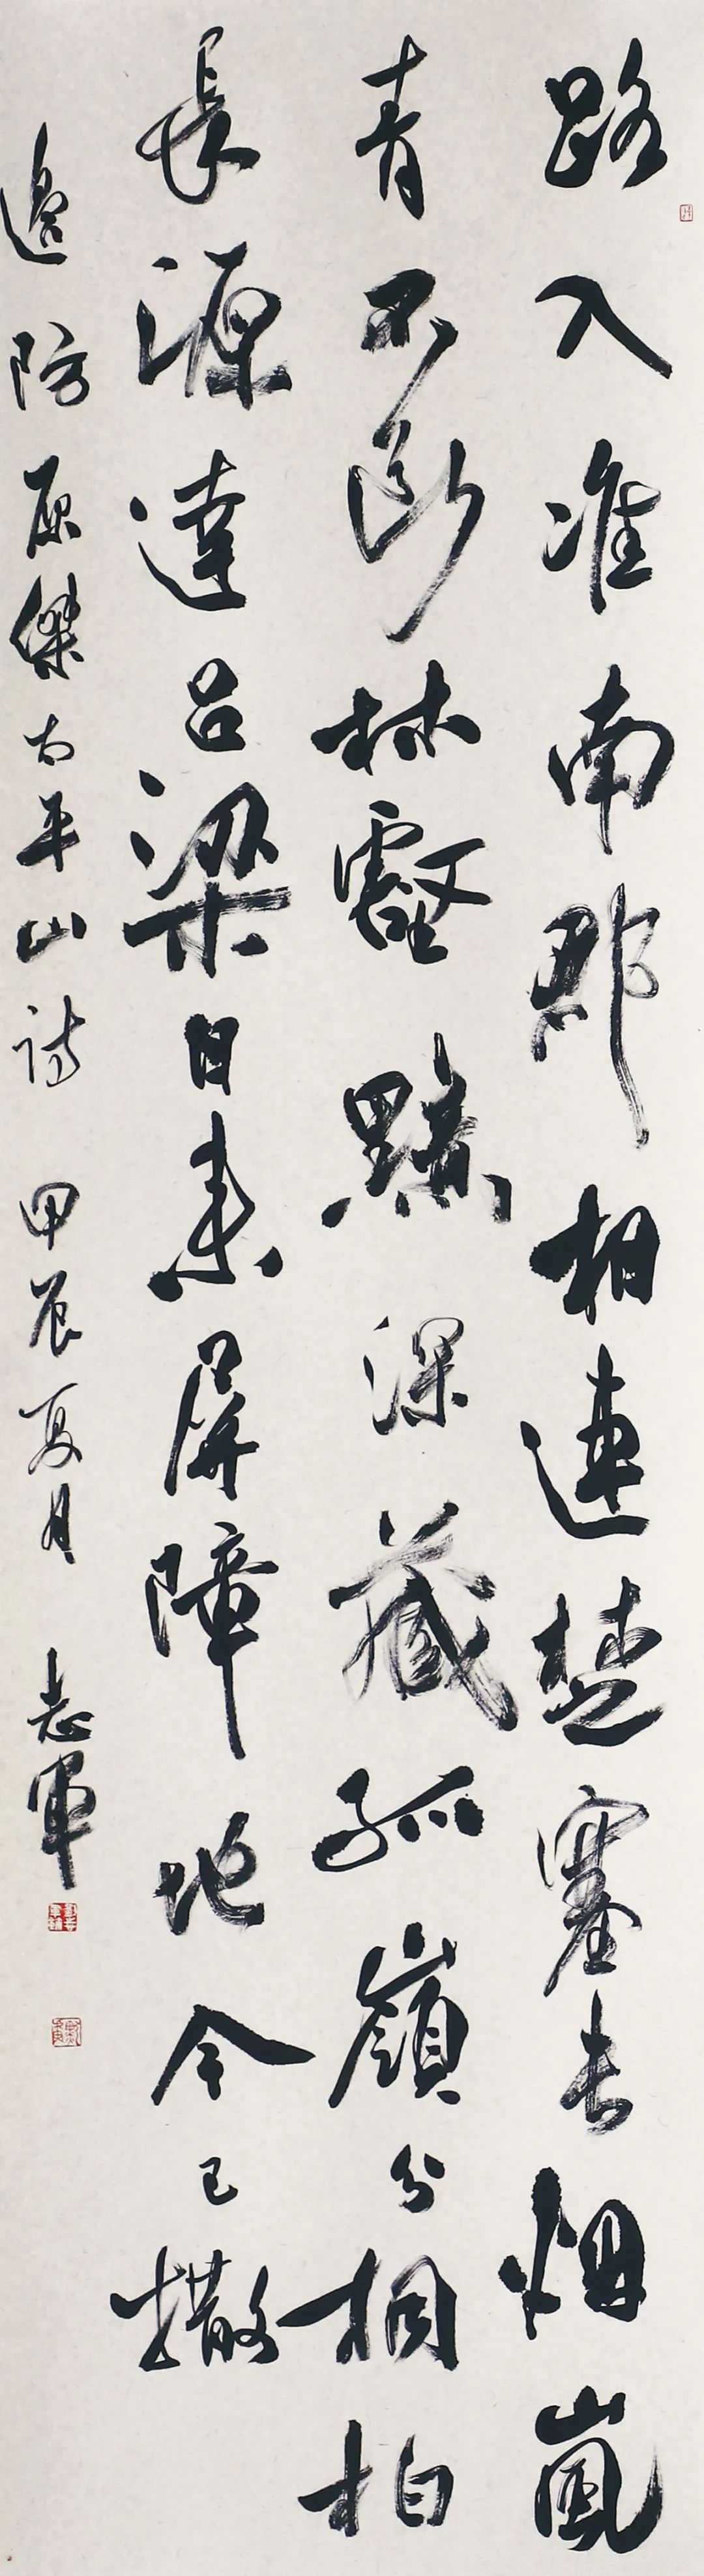 路入淮南郡相連楚塞長烟嵐
青不斷林壑黯深藏孤嶺分桐柏
長源達呂梁日來屏障地今已撤
邊防 原傑太平山詩 甲辰夏月 志軍